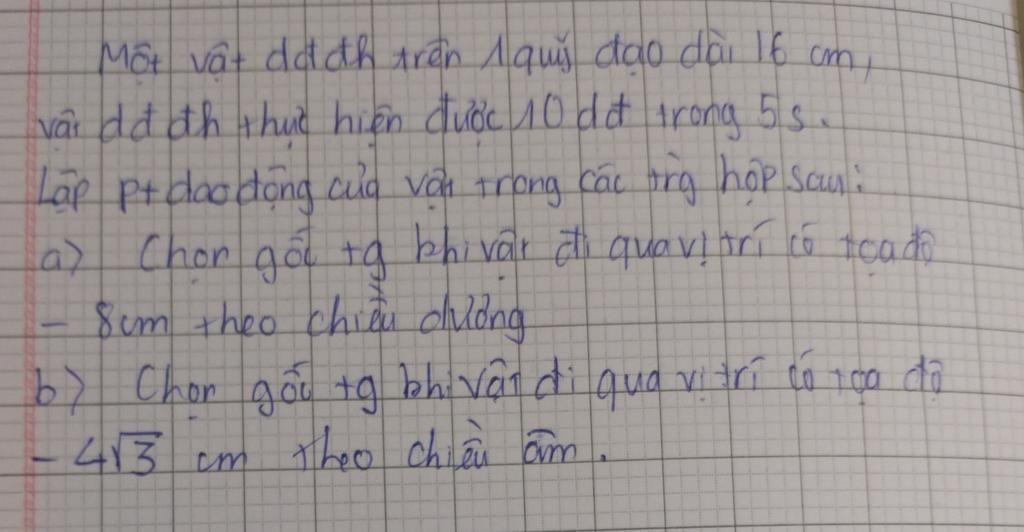 Một vật dđđh trên 1 quỹ đạo dài 16 cm,
vật dđ đh thực hiện được 10 dđ trong 5s.
Lập pt dao động của vật trong các trg hợp sau:
a) Chọn gốc tg khi vật đi qua vị trí có tọa độ
- 8cm theo chiều dương
b) Chọn gốc tg khi vật đi qua vị trí có tọa độ
- 4√3 cm theo chiều âm.